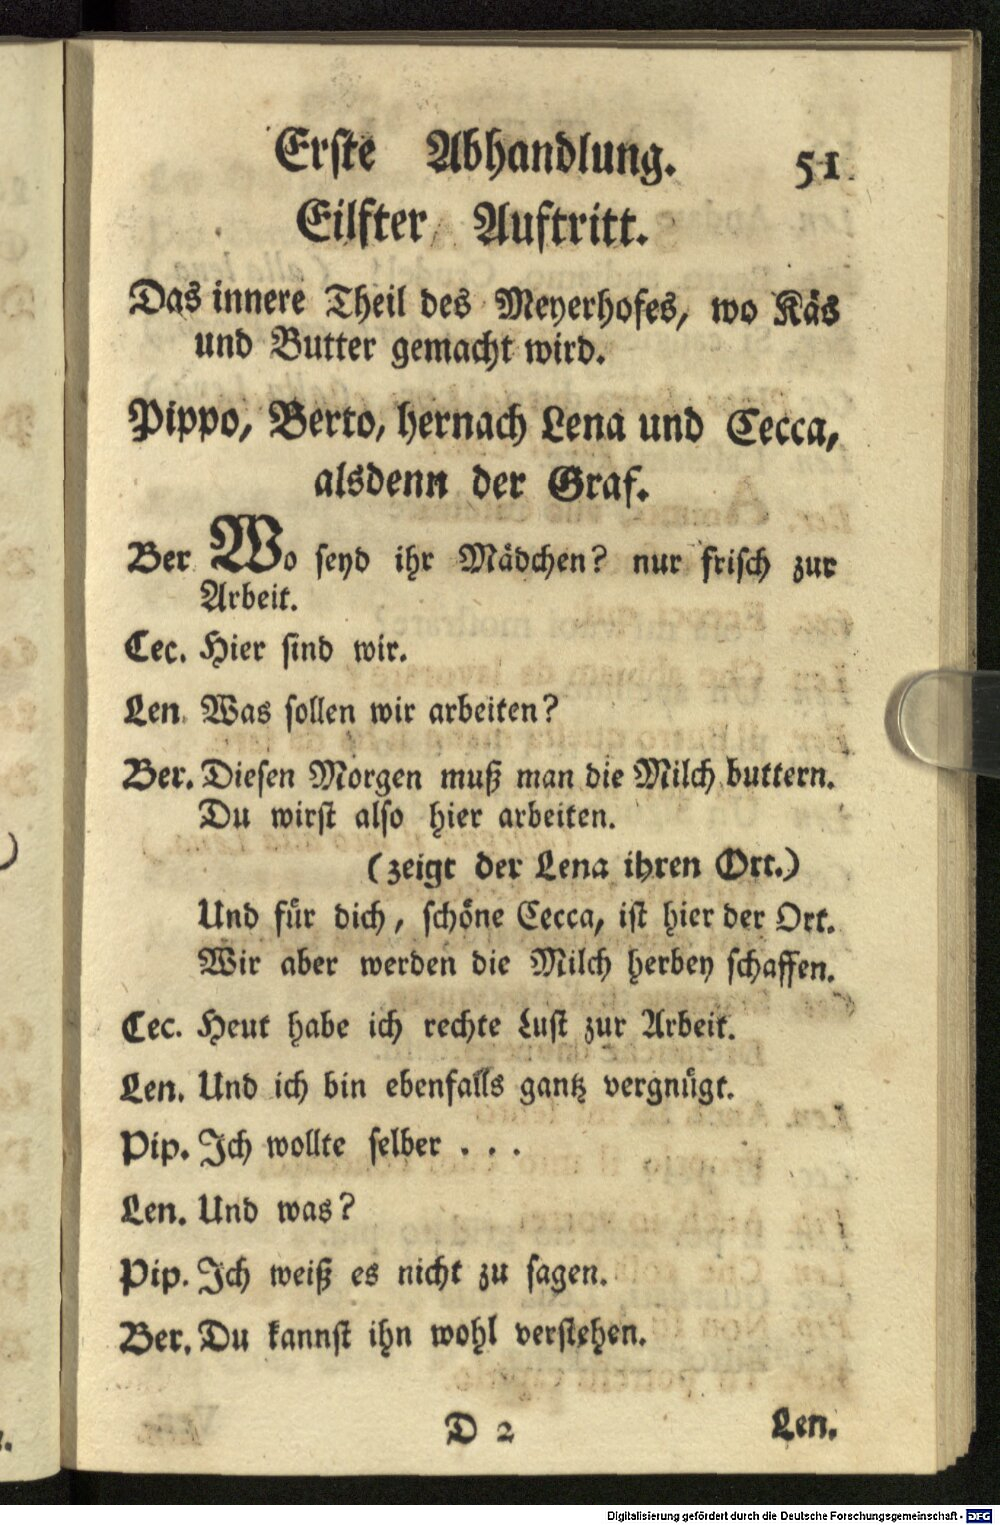 Erste Abhandlung. 51
Eilfter Auftritt.
Das innere Theil des Meyerhofes, wo Käs
und Butter gemacht wird.
Pippo, Berto, hernach Lena und Cecca,
alsdenn der Graf.
Ber Wo seyd ihr Mädchen? nur frisch zur
Arbeit.
Cec. Hier sind wir.
Len. Was sollen wir arbeiten?
Ber. Diesen Morgen muß man die Milch buttern.
Du wirst also hier arbeiten.
(zeigt der Lena ihren Ort.)
Und für dich, schöne Cecca, ist hier der Ort.
Wir aber werden die Milch herbey schaffen.
Cec. Heut habe ich rechte Lust zur Arbeit.
Len. Und ich bin ebenfalls gantz vergnügt.
Pip. Ich wollte selber . . .
Len. Und was?
Pip. Ich weiß es nicht zu sagen.
Ber. Du kannst ihn wohl verstehen.
D 2 Len.
Digitalisierung gefördert durch die Deutsche Forschungsgemeinschaft - DFG